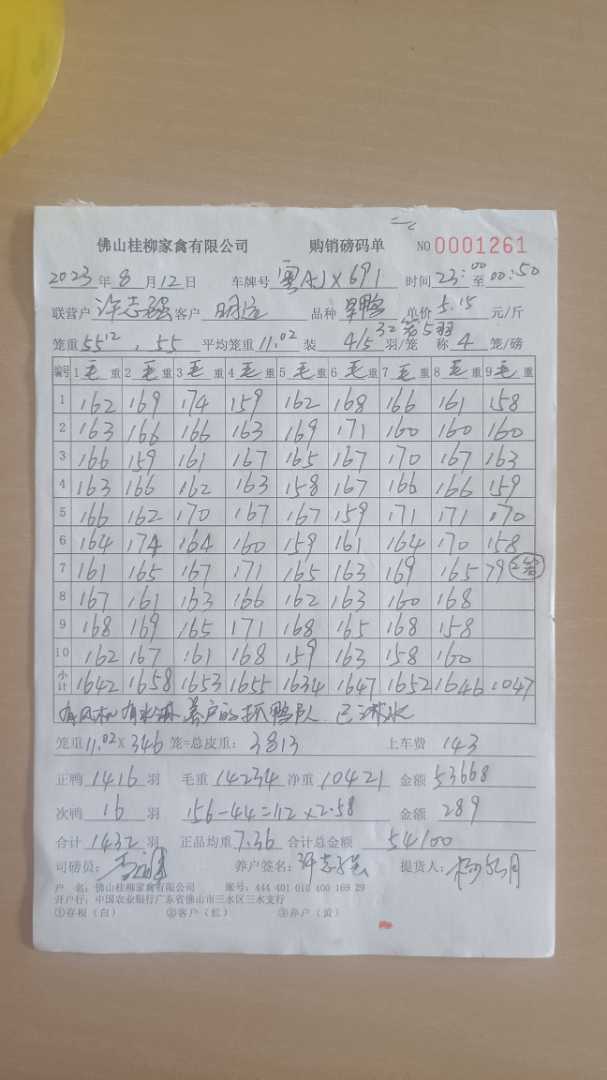 佛山桂柳家禽有限公司 购销磅码单 NO 0001261
2023年8月12日 车牌号 粤AJX691 时间 23:00至00:50
联营户 许志强 客户 明 品种 鸭 单价 5.15 元/斤
笼重 55 12 . 55 平均笼重 11.02 装 4/5 羽/笼 称 4 笼/磅
32笼5羽
编号 1毛重 2毛重 3毛重 4毛重 5毛重 6毛重 7毛重 8毛重 9毛重
1 162 169 174 159 162 168 166 161 158
2 163 166 166 163 169 171 160 160 160
3 166 159 161 167 165 167 170 167 163
4 163 166 162 163 158 167 166 166 159
5 166 162 170 167 167 159 171 171 170
6 164 174 164 160 159 161 164 170 158
7 161 165 167 171 165 163 169 165 79 2笼
8 167 161 163 166 162 163 160 168
9 168 169 165 171 168 165 168 158
10 162 167 161 168 159 163 158 160
小计 1642 1658 1653 1655 1634 1647 1652 1646 1047
有风机 有水淋 养户的抓鸭队 已淋水
笼重 11.02 × 346 笼=总皮重: 3813 上车费 143
正鸭 1416 羽 毛重 14234 净重 10421 金额 53668
次鸭 16 羽 156-44=112×2.58 金额 289
合计 1432 羽 正品均重 7.36 合计总金额 54100
司磅员: 养户签名: 许志强 提货人:
户 名: 佛山桂柳家禽有限公司 账号: 444 401 010 400 169 29
开户行: 中国农业银行广东省佛山市三水区三水支行
①存根(白) ②客户(红) ③养户(黄)